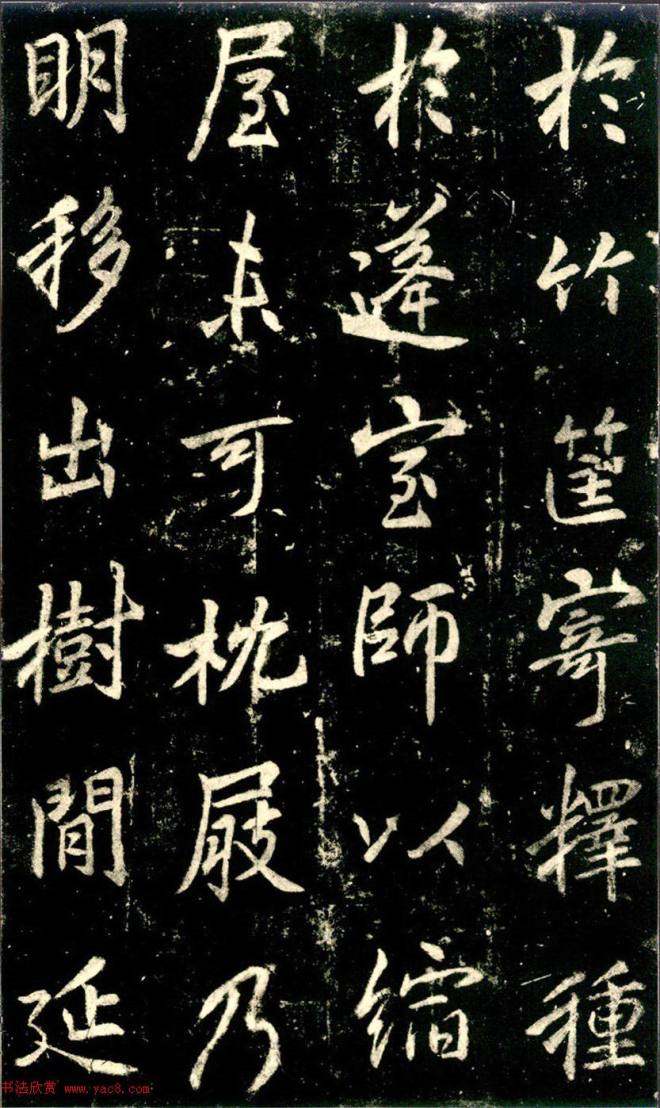 於竹筐寄釋種
於蓬室師以縮
屋未可枕屐乃
明移出樹間延
书法欣赏 www.yac8.com